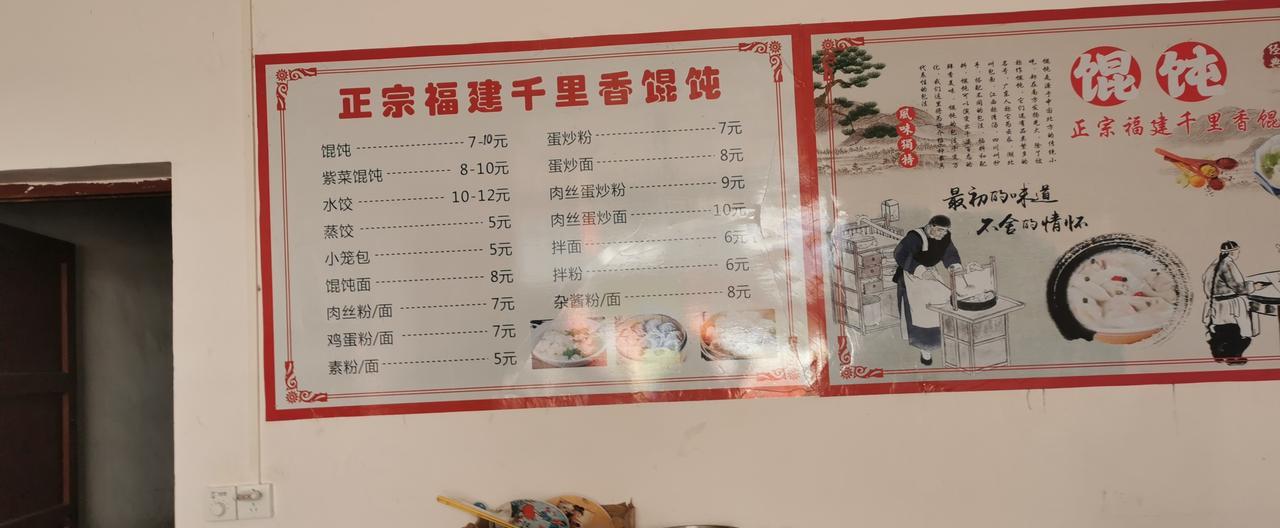 正宗福建千里香馄饨
馄饨 7-10元
紫菜馄饨 8-10元
水饺 10-12元
蒸饺 5元
小笼包 5元
馄饨面 8元
肉丝粉/面 7元
鸡蛋粉/面 7元
素粉/面 5元
蛋炒粉 7元
蛋炒面 8元
肉丝蛋炒粉 9元
肉丝蛋炒面 10元
拌面 6元
拌粉 6元
杂酱粉/面 8元
風味獨特
馄饨
正宗福建千里香馄
最初的味道
不舍的情怀